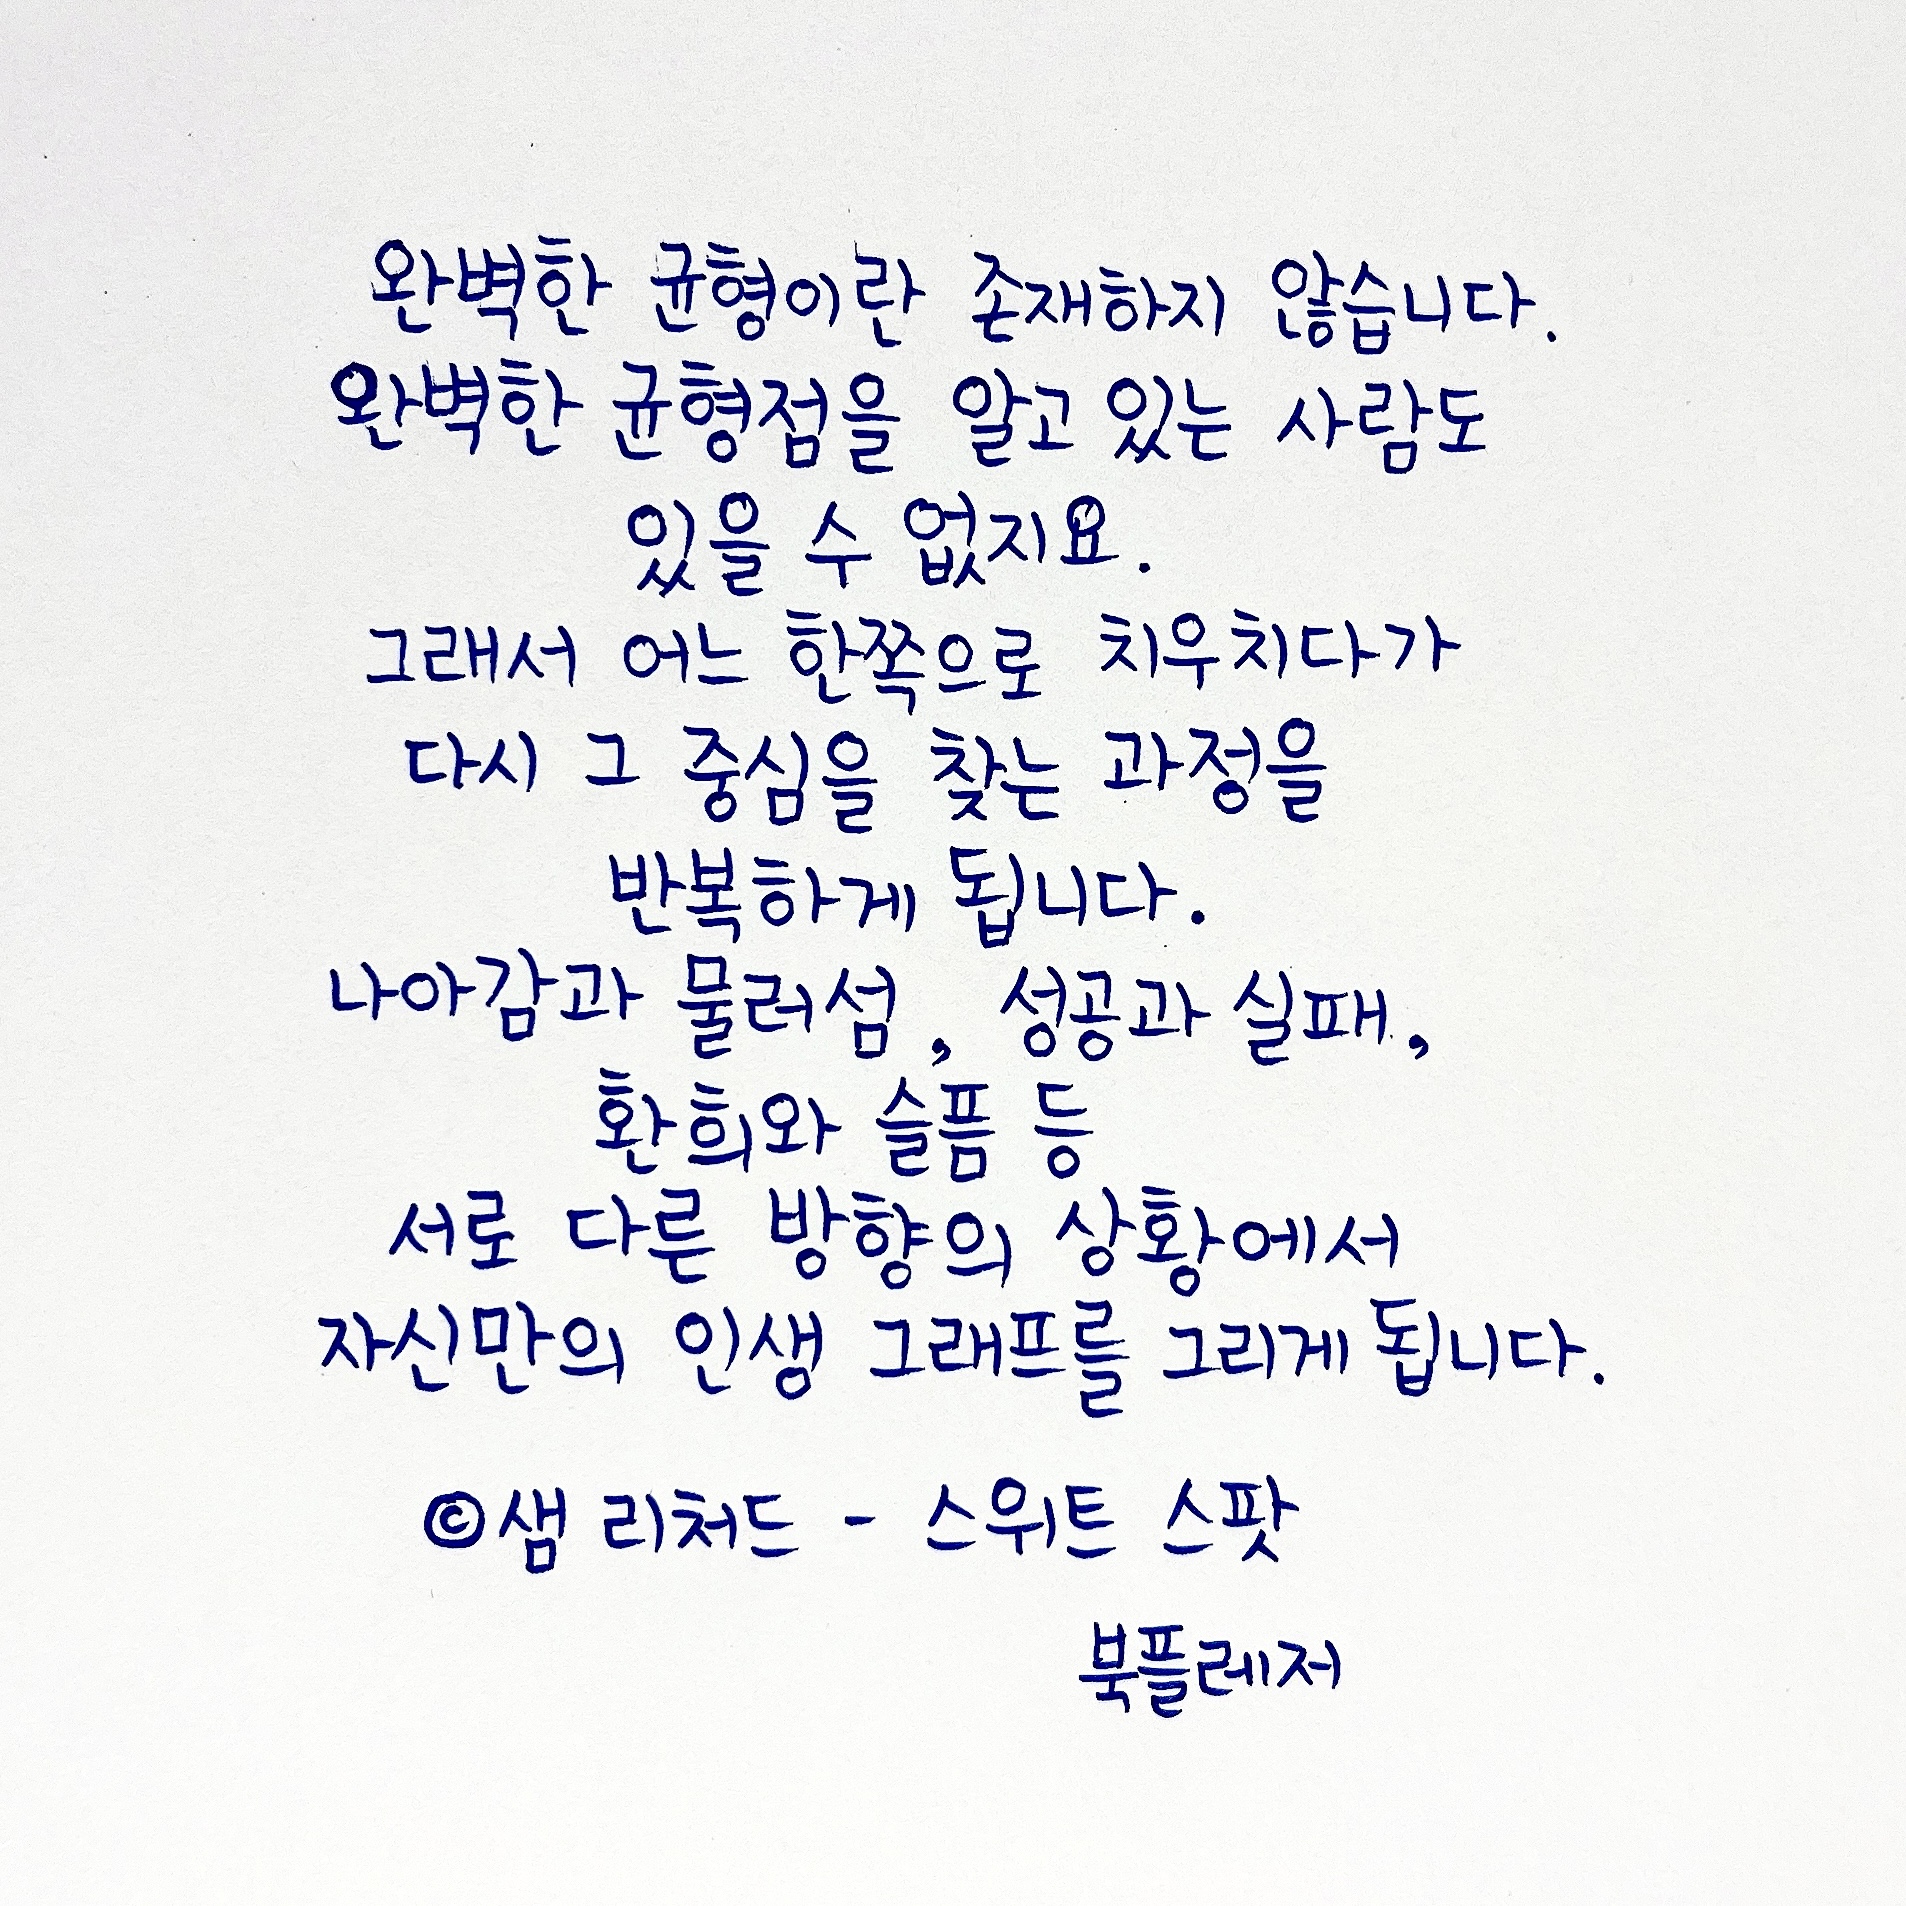 완벽한 균형이란 존재하지 않습니다.
완벽한 균형점을 알고 있는 사람도
있을 수 없지요.
그래서 어느 한쪽으로 치우치다가
다시 그 중심을 찾는 과정을
반복하게 됩니다.
나아감과 물러섬, 성공과 실패,
환희와 슬픔 등
서로 다른 방향의 상황에서
자신만의 인생 그래프를 그리게 됩니다.
©샘 리처드 - 스위트 스팟
북플레저